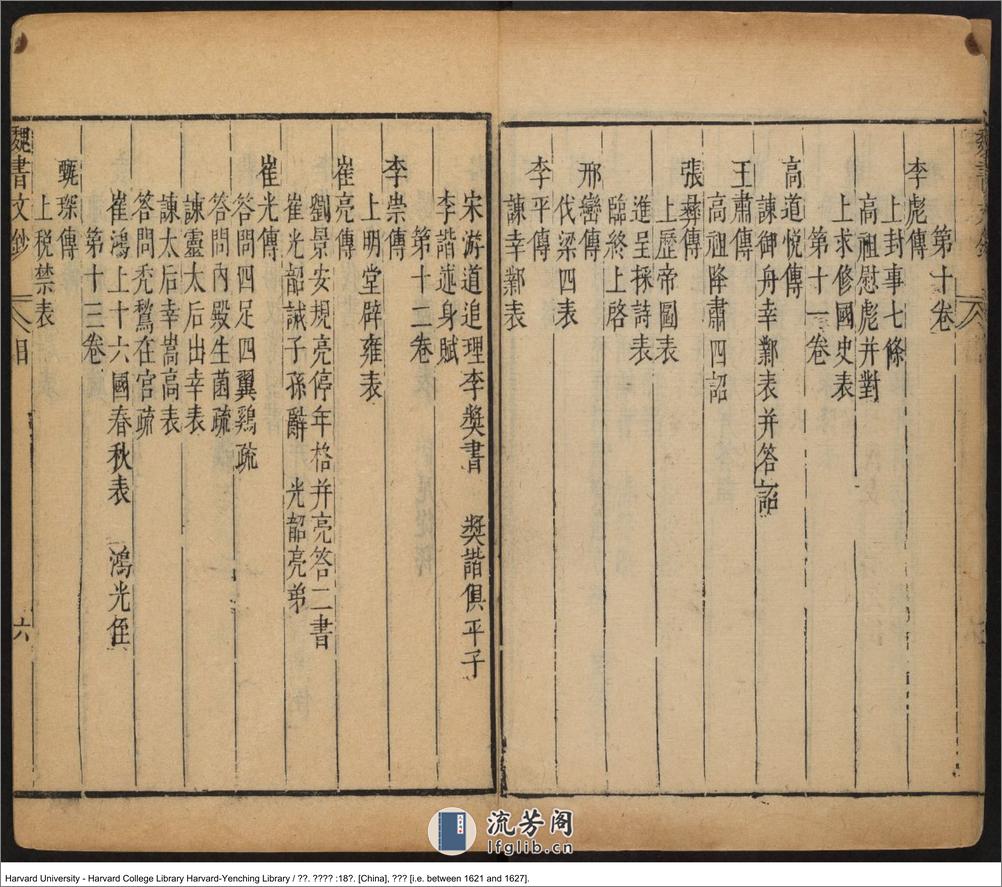 第十卷
李彪傳
上封事七條
高祖慰彪并對
上求修國史表
第十一卷
高道悅傳
諫御舟幸鄴表并答詔
王肅傳
高祖降肅四詔
張彝傳
上歷帝圖表
進呈採詩表
臨終上啓
邢巒傳
伐梁四表
李平傳
諫幸鄴表
宋游道追理李奬書 奬諧俱平子
李諧述身賦
第十二卷
李崇傳
上明堂辟雍表
崔亮傳
劉景安規亮停年格并亮答二書
崔光韶誡子孫辭 光韶亮弟
崔光傳
答問四足四翼鷄疏
答問內殿生菌疏
諫靈太后出幸表
諫太后幸嵩高表
答問禿鶖在宮疏
崔鴻上十六國春秋表 鴻光侄
第十三卷
甄琛傳
上税禁表
魏書文鈔 目 六
流芳阁
lfglib.cn
Harvard University - Harvard College Library Harvard-Yenching Library / ??. ???? :18?. [China], ??? [i.e. between 1621 and 1627].